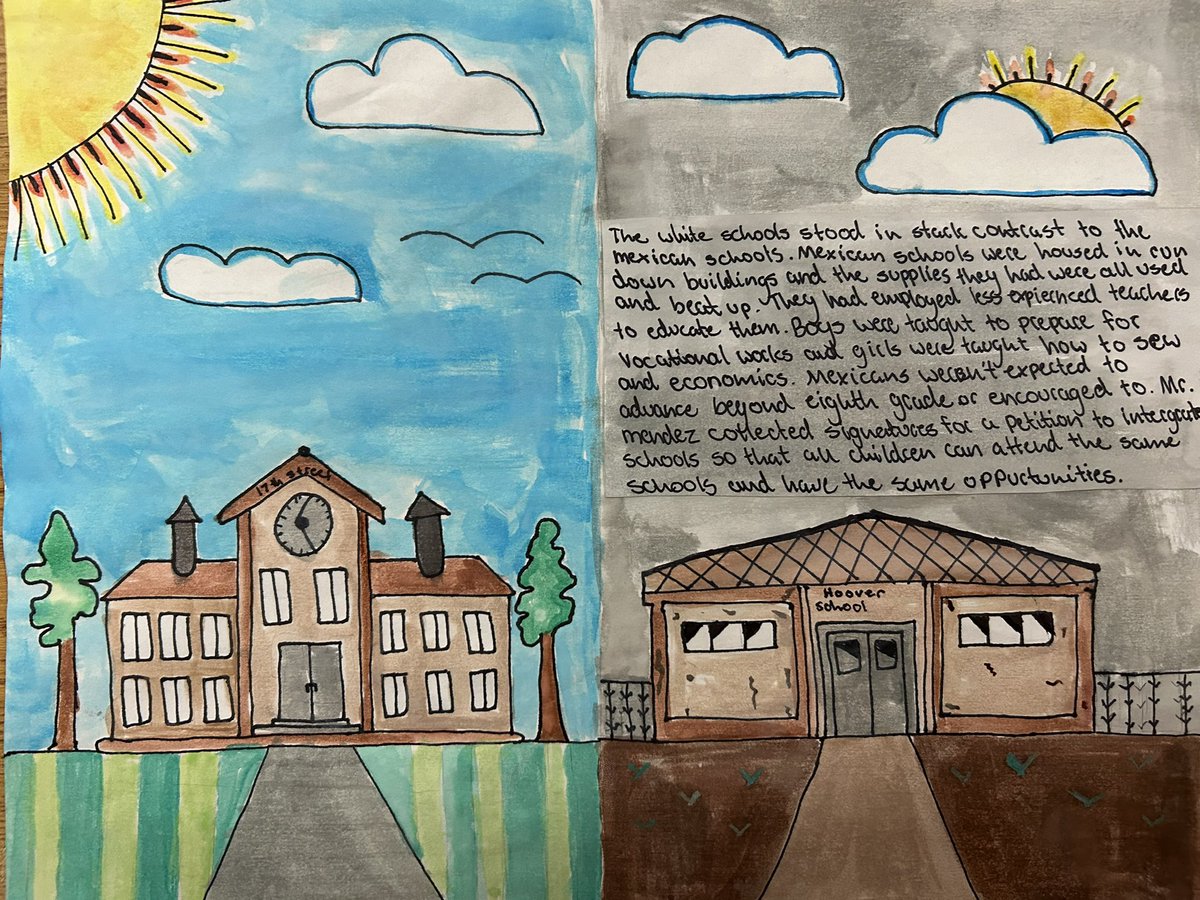 17th street
The white schools stood in stack contrast to the
mexican schools. Mexican schools were housed in run
down buildings and the supplies they had were all used
and beat up. They had employed less expiernced teachers
to educate them. Boys were taught to prepare for
vocational works and girls were taught how to sew
and economics. Mexicans weren't expected to
advance beyond eighth grade or encouraged to. Mr.
mendez collected signatures for a petition to intergrate
schools so that all children can attend the same
schools and have the same oppurtunities.
Hoover
School